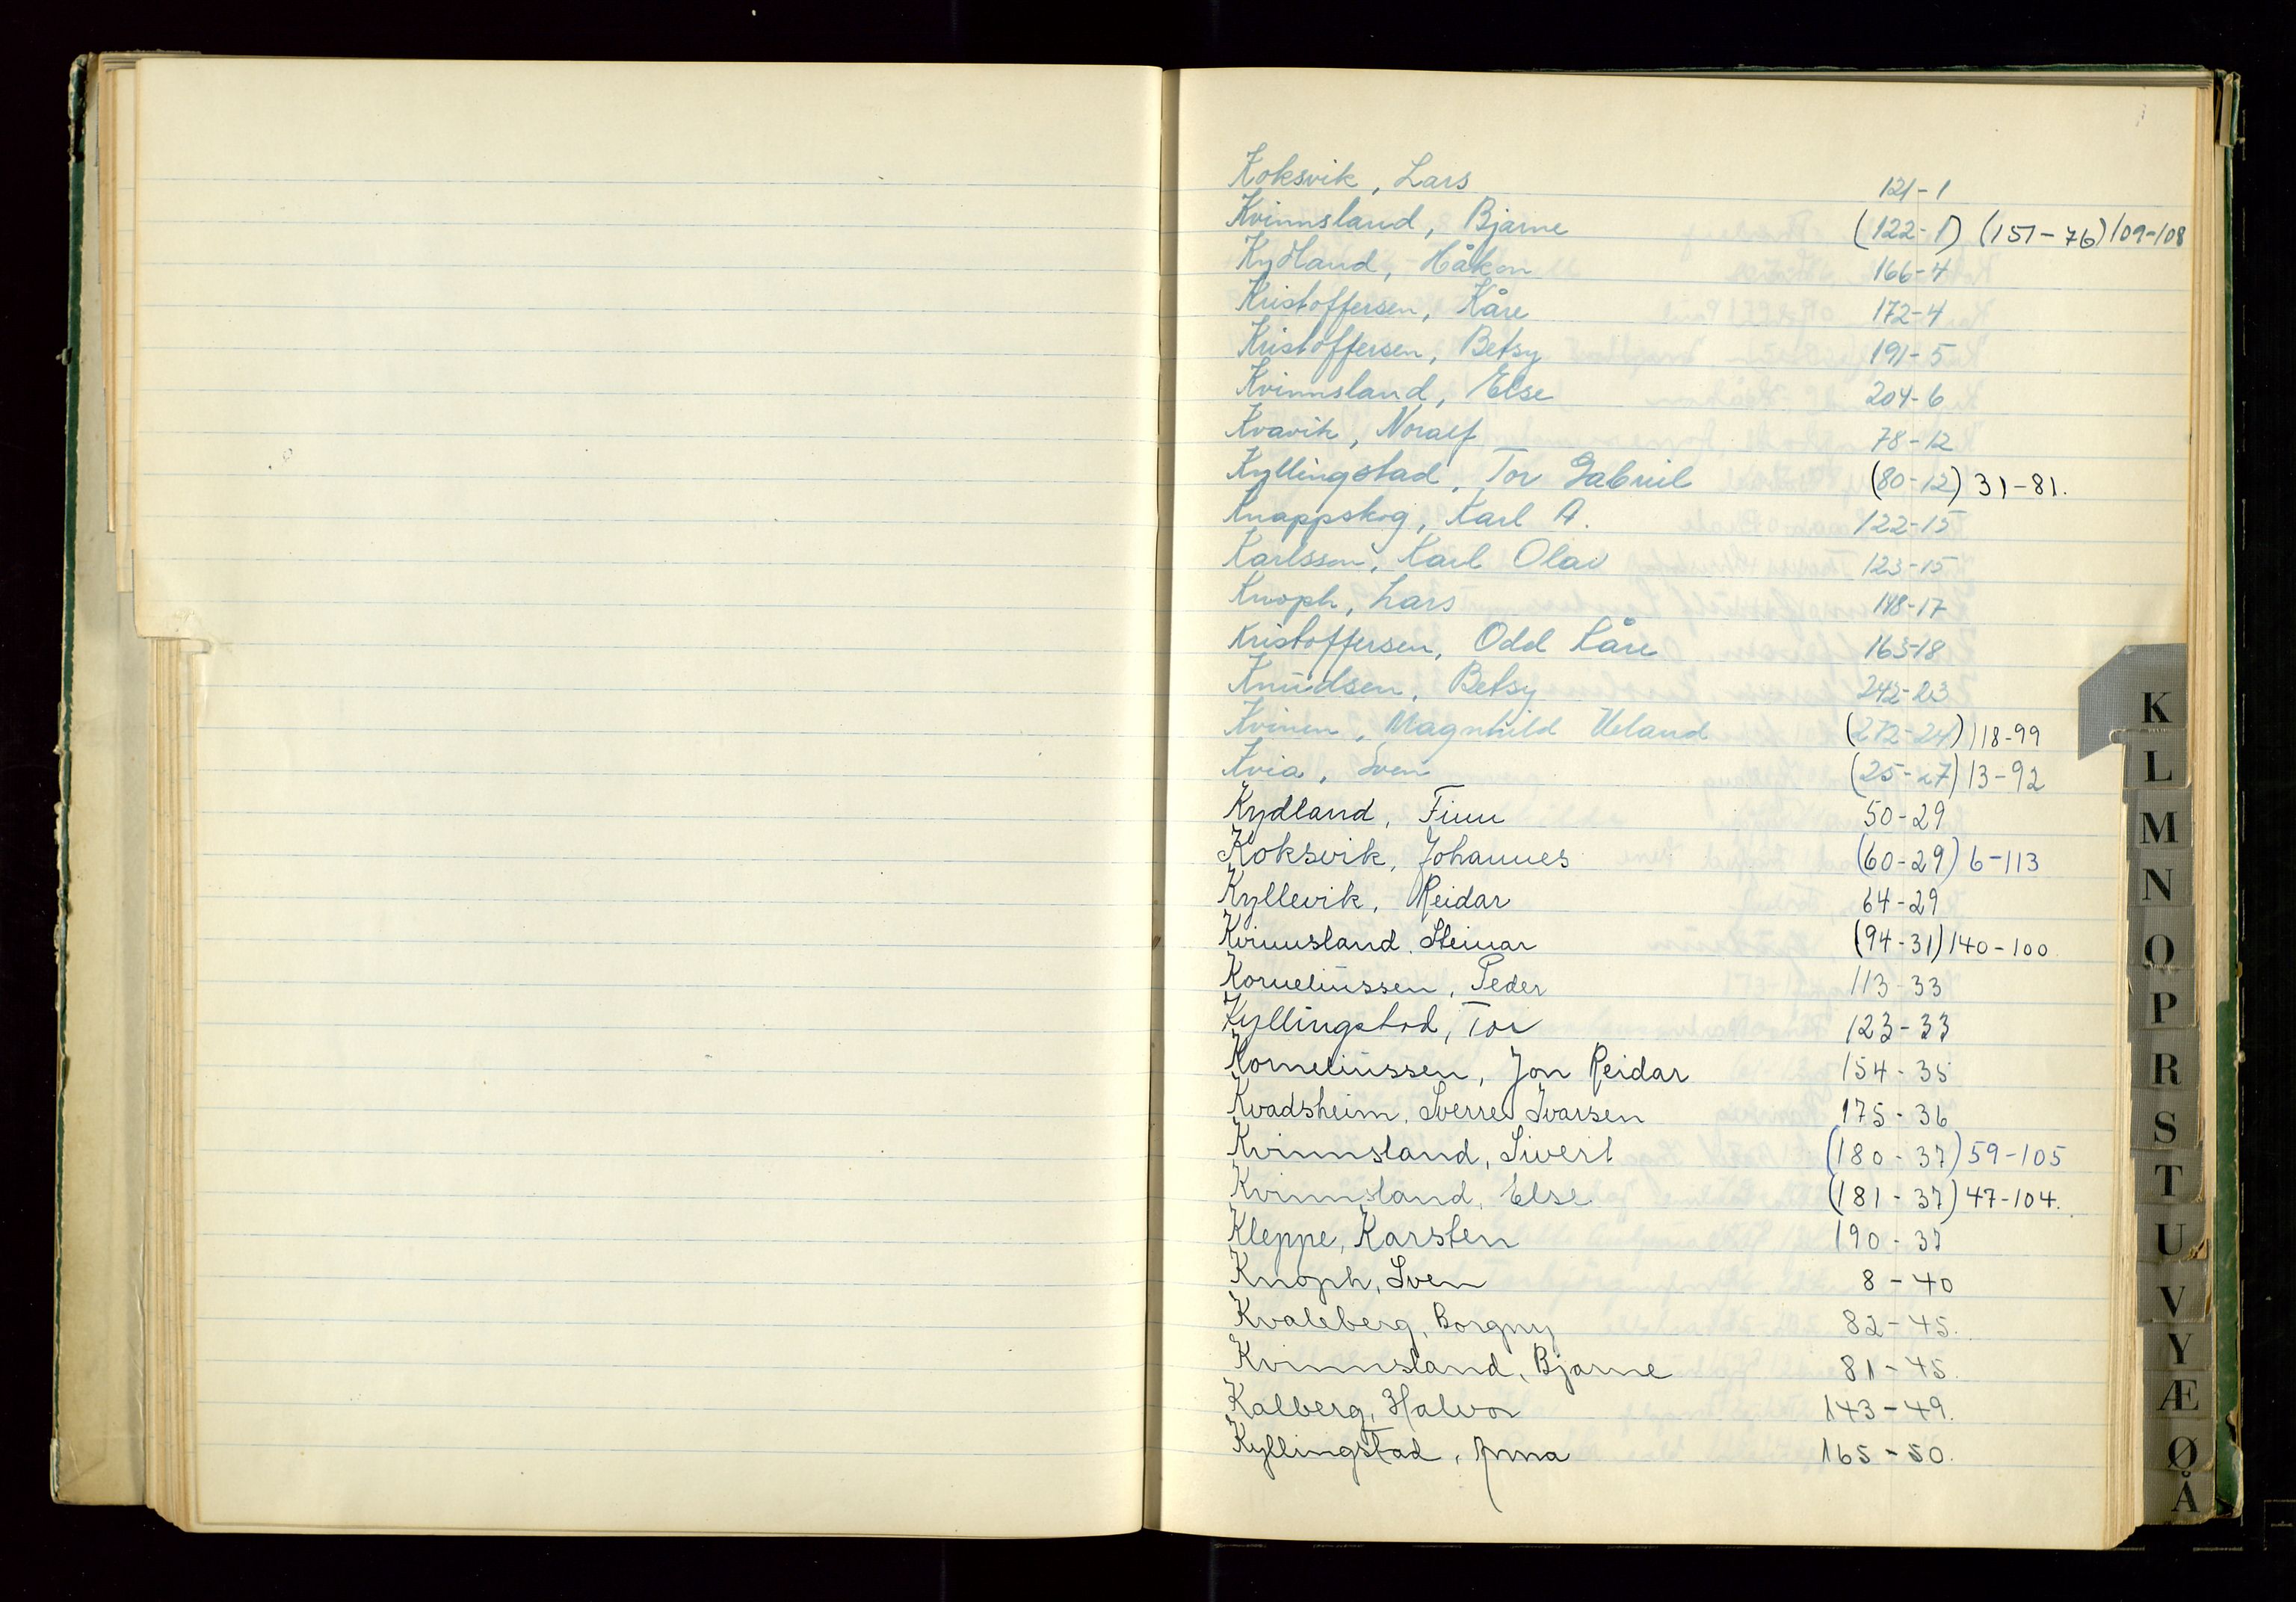 Koksvik, Lars 121-1
Kvinnsland, Bjarne (122-1) (151-76) 109-108
Kydland, Håkon 166-4
Kristoffersen, Kåre 172-4
Kristoffersen, Betsy 191-5
Kvinnsland, Else 204-6
Kvavik, Noralf 78-12
Kyllingstad, Tor Gabriel (80-12) 31-81.
Knappskog, Karl A. 122-15
Karlsson, Karl Olav 123-15
Knoph, Lars 148-17
Kristoffersen, Odd Kåre 163-18
Knudsen, Betsy 242-23
Kvinen, Magnhild Ueland (272-24) 118-99
Kvia, Sven (25-27) 13-92
Kydland, Finn 50-29
Koksvik, Johannes (60-29) 6-113
Kyllevik, Reidar 64-29
Kvinnsland, Steinar (94-31) 140-100
Korneliussen, Peder 113-33
Kyllingstad, Tor 123-33
Korneliussen, Jon Reidar 154-35
Kvadsheim, Sverre Ivarsen 175-36
Kvinnsland, Sivert (180-37) 59-105
Kvinnsland, Else (181-37) 47-104.
Kleppe, Karsten 190-37
Knoph, Sven 8-40
Kvaleberg, Borgny 82-45.
Kvinnsland, Bjarne 81-45.
Kalberg, Halvor 143-49.
Kyllingstad, Anna 165-50.
K
L
M
N
O
P
R
S
T
U
V
Y
Æ
Ø
Å